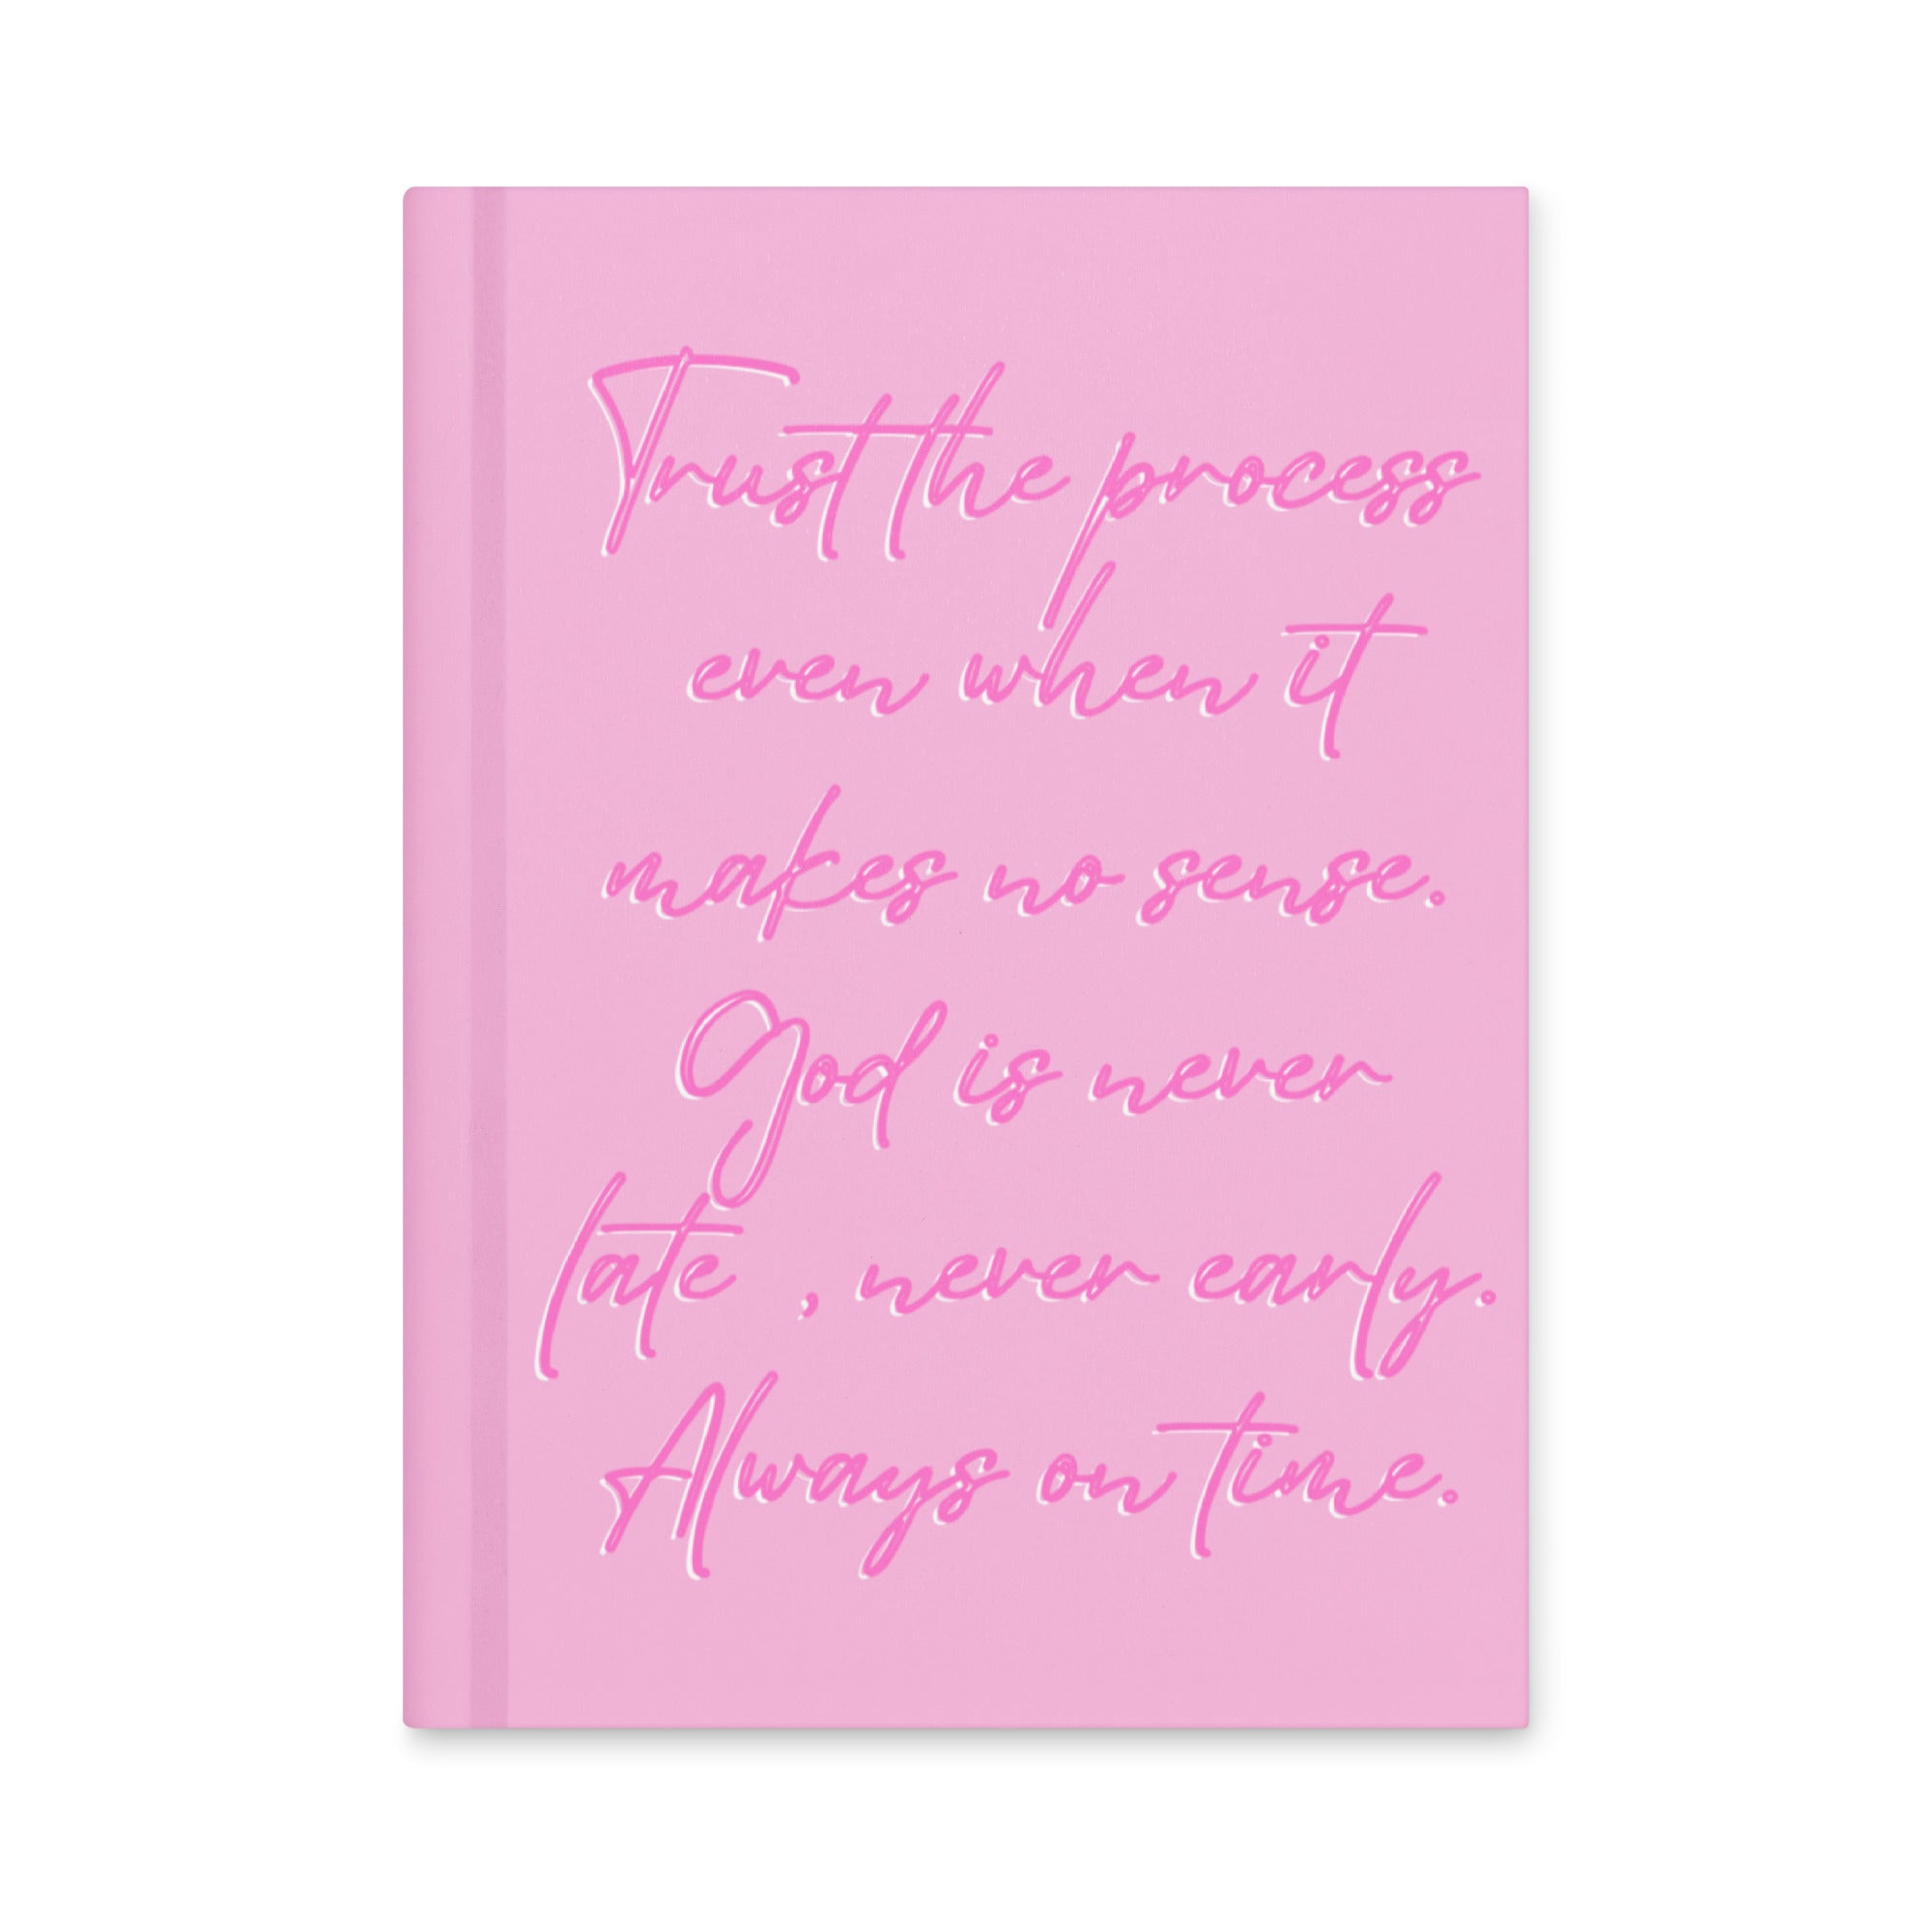 Trust the process
even when it
makes no sense.
God is never
late , never early.
Always on time.